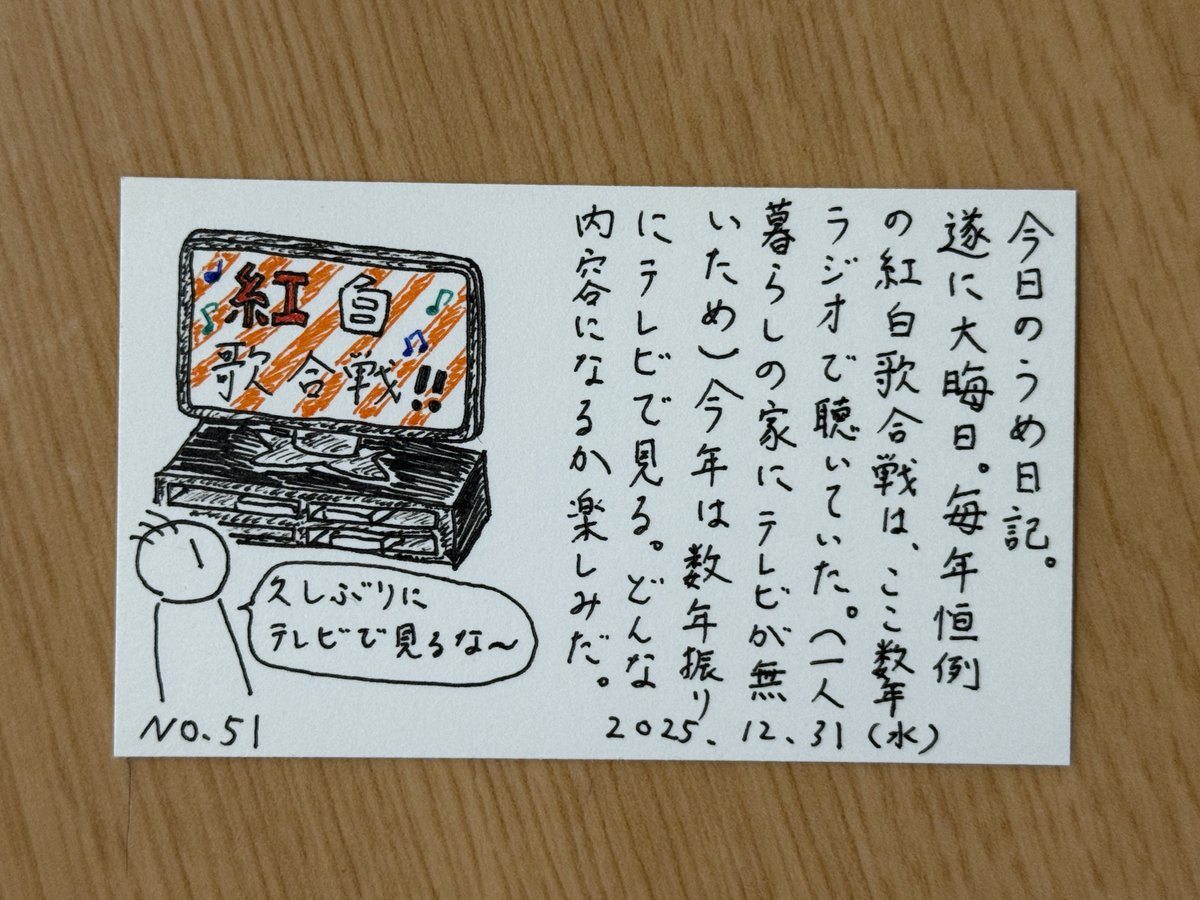 今日のうめ日記。
遂に大晦日。毎年恒例
の紅白歌合戦は、ここ数年
ラジオで聴いていた。(一人
暮らしの家にテレビが無
いため)今年は数年振り
にテレビで見る。どんな
内容になるか楽しみだ。
2025.12.31(水)
紅白
歌合戦!!
久しぶりに
テレビで見るな〜
NO.51